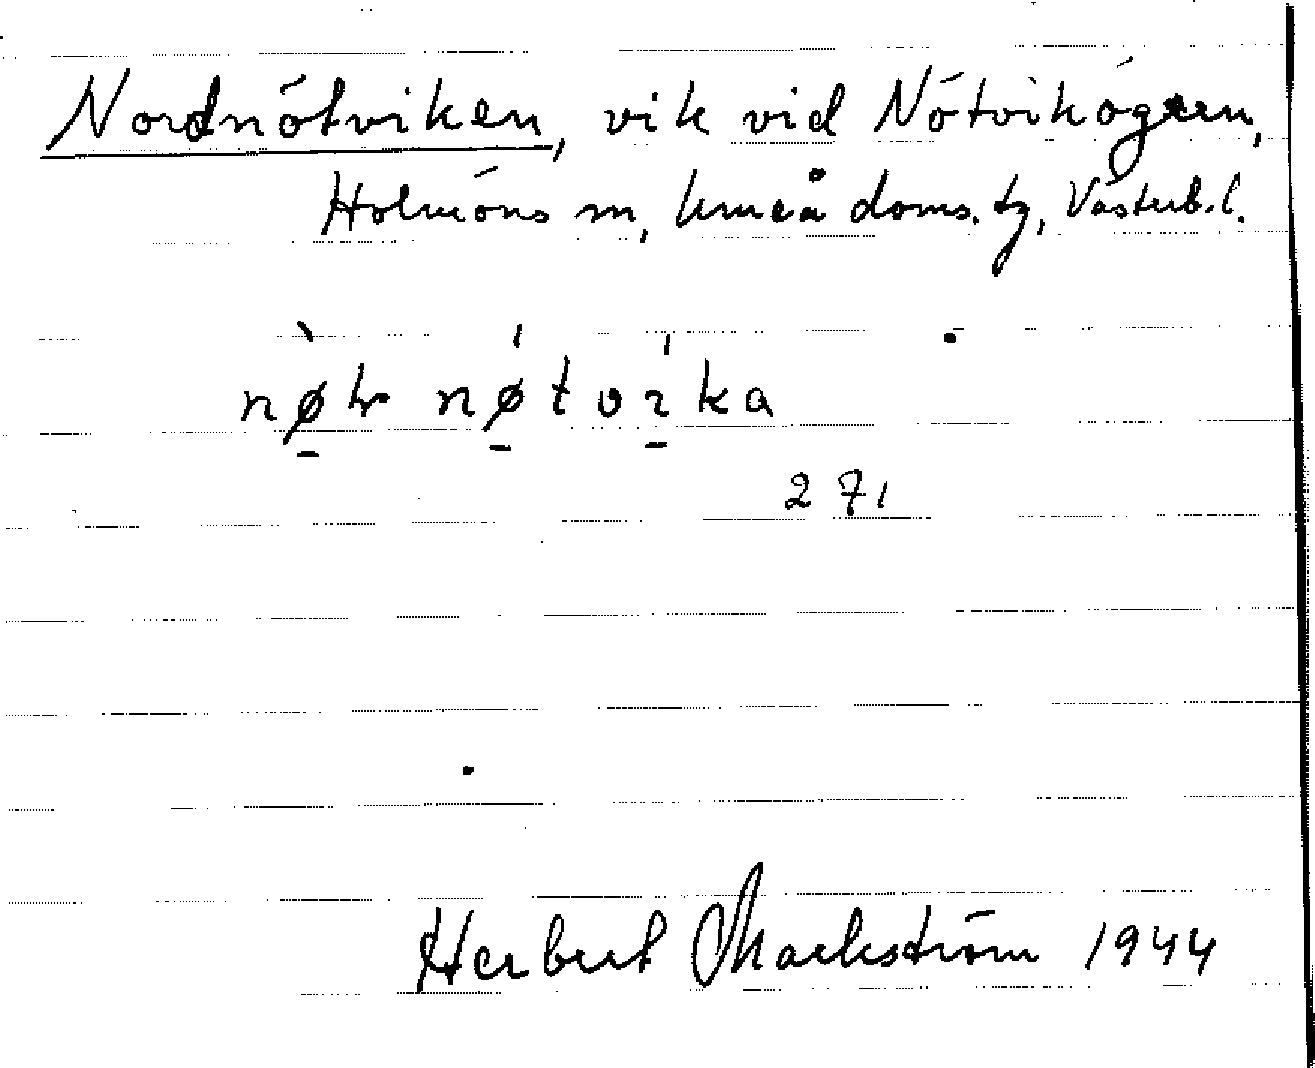 Nordnötviken, vik vid Nötviksögern,
Holmöns sn, Umeå doms. tg, Västerb. l.
nø̀r nǿtvíka
271
Herbert Markström 1944